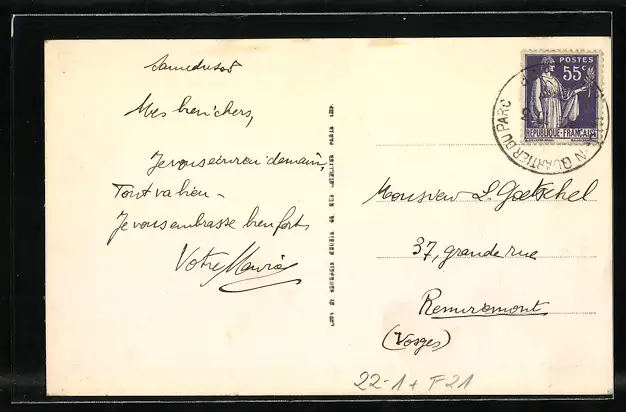 Samedi soir
Mes bien chers,
Je vous écrirai demain,
Tout va bien -
Je vous embrasse bien fort
Votre
POSTES
55c
REPUBLIQUE-FRANÇAISE
QUARTIER DU PARC
Monsieur L. Goetschel
37, grande rue
Remiremont
(Vosges)
22-1 + F21